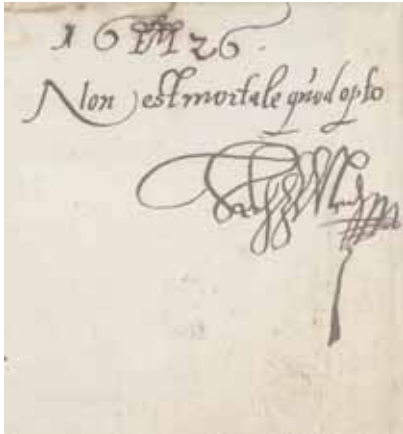 16 26.
Non est mortale quod opto